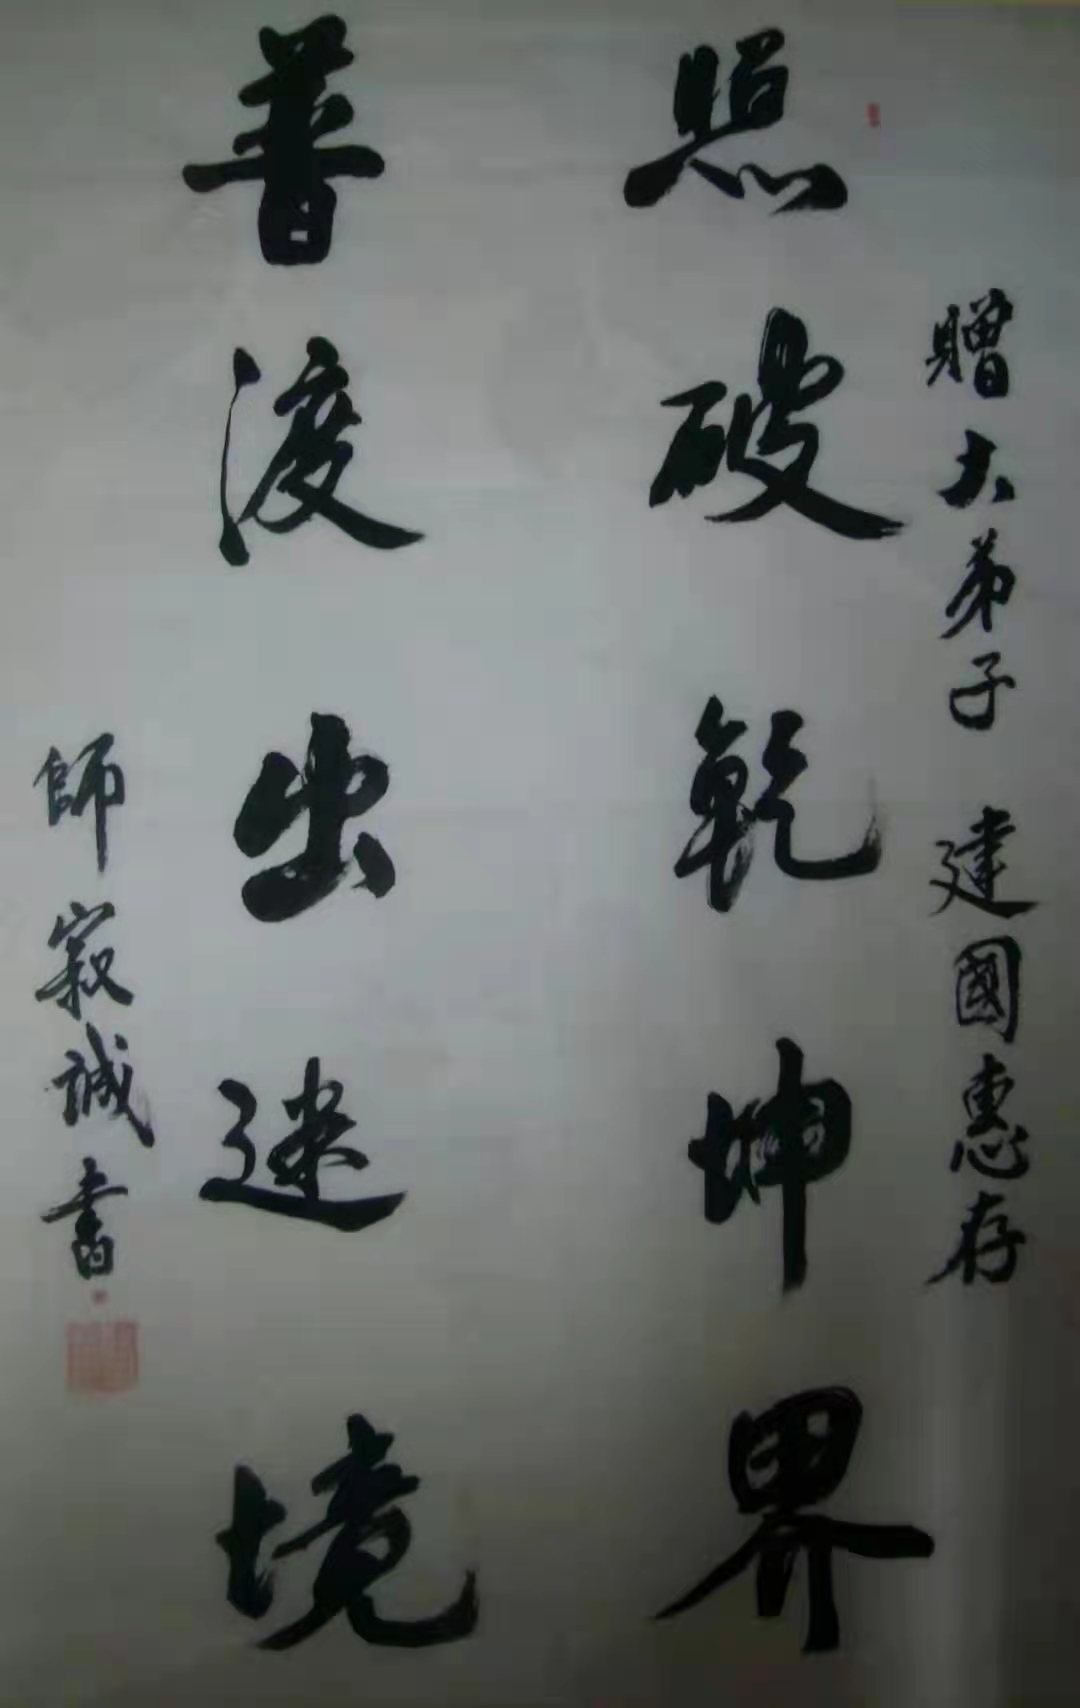 贈大弟子 建國惠存
照破乾坤界
普渡出迷境
師寂誠書